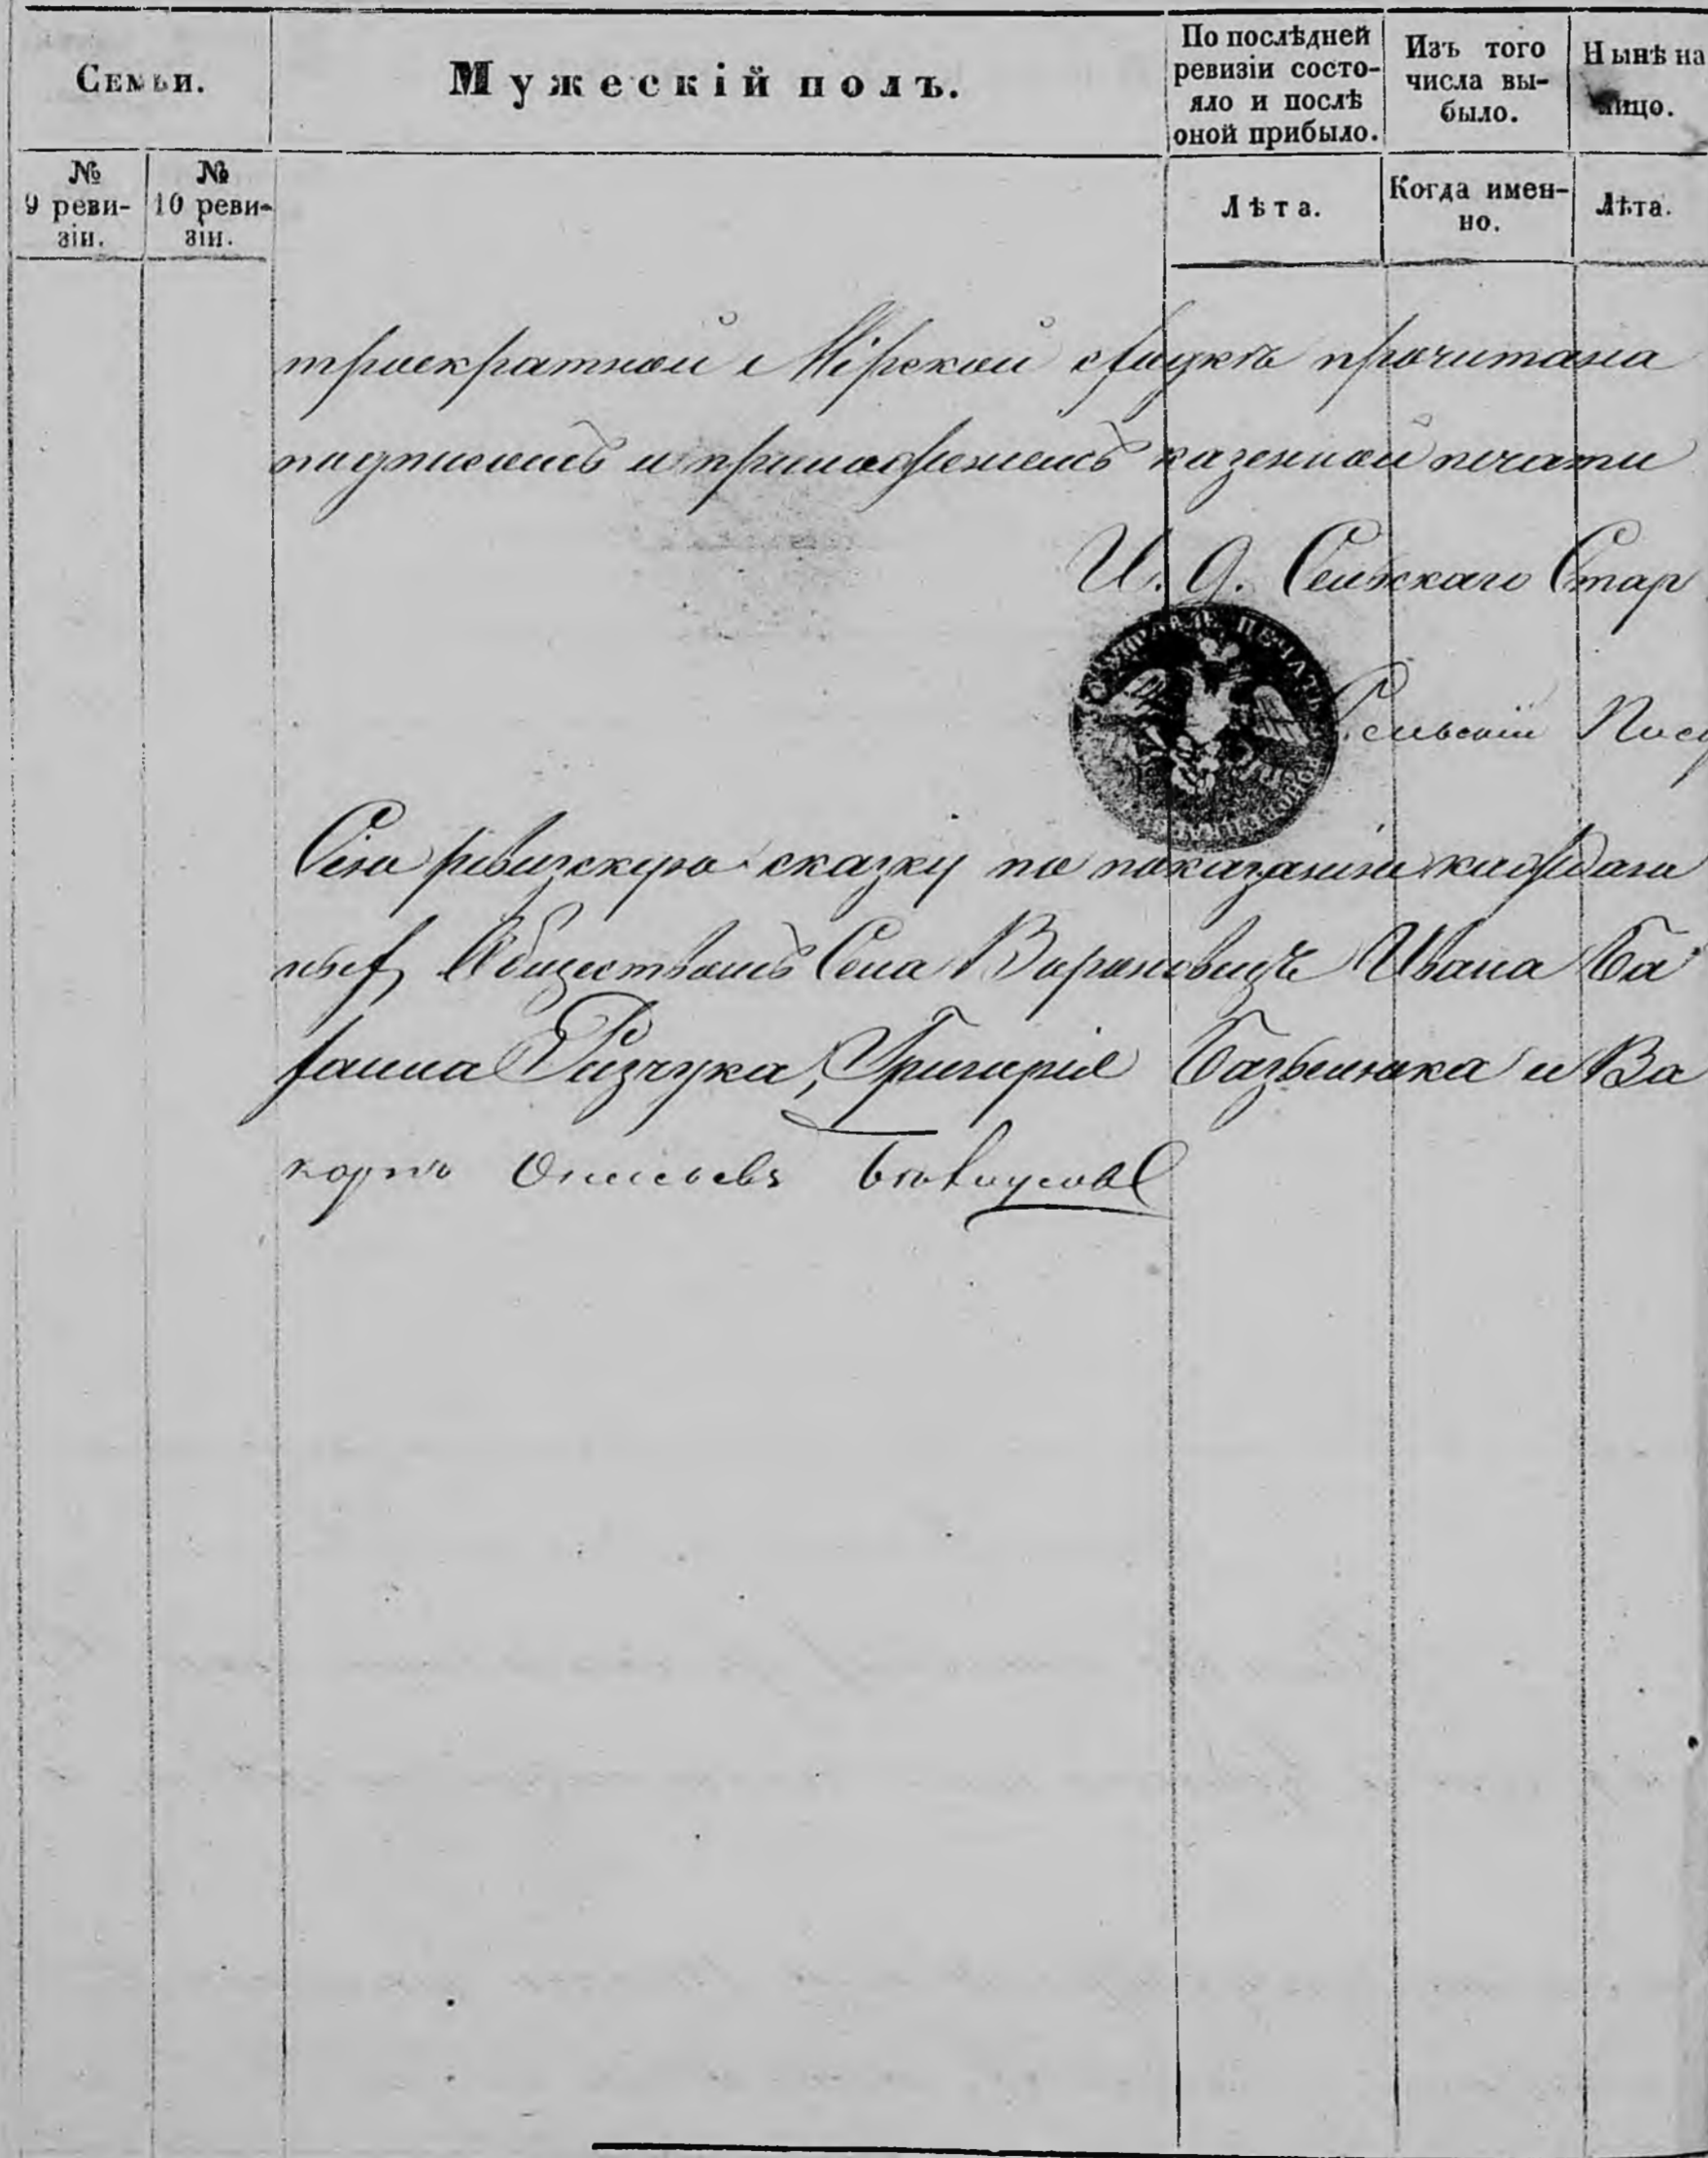 Семьи.
Мужескій полъ.
По послѣдней
ревизіи состо-
яло и послѣ
оной прибыло.
Изъ того
числа вы-
было.
Нынѣ на
лицо.
№
9 реви-
зіи.
№
10 реви-
зіи.
Лѣта.
Когда имен-
но.
Лѣта.
троекратной Мірской сходкѣ прочитана
подписомъ и приложеніемъ казенной печати
И. Д. Сельскаго Стар
ПЕЧАТЬ
Сельскій Писа
Сію ревизскую сказку по показанію каждаго
ныхъ Обществомъ Села Вороновицъ Ивана Ба
Григорія и Ва